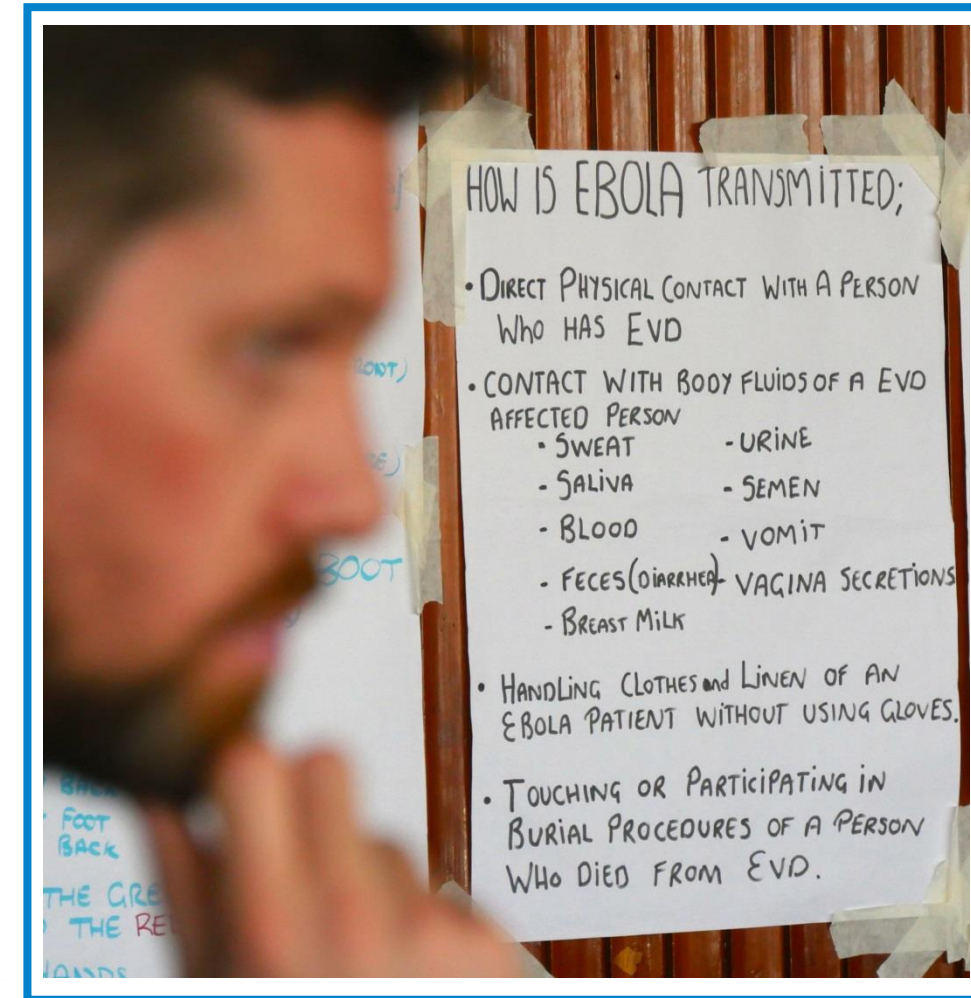 HOW IS EBOLA TRANSMITTED;
• DIRECT PHYSICAL CONTACT WITH A PERSON
WHO HAS EVD
• CONTACT WITH BODY FLUIDS OF A EVD
AFFECTED PERSON
- SWEAT - URINE
- SALIVA - SEMEN
- BLOOD - VOMIT
- FECES (DIARRHEA) - VAGINA SECRETIONS
- BREAST MILK
• HANDLING CLOTHES and LINEN OF AN
EBOLA PATIENT WITHOUT USING GLOVES.
• TOUCHING OR PARTICIPATING IN
BURIAL PROCEDURES OF A PERSON
WHO DIED FROM EVD.
BOOT
BACK
FOOT
BACK
THE
THE
HANDS